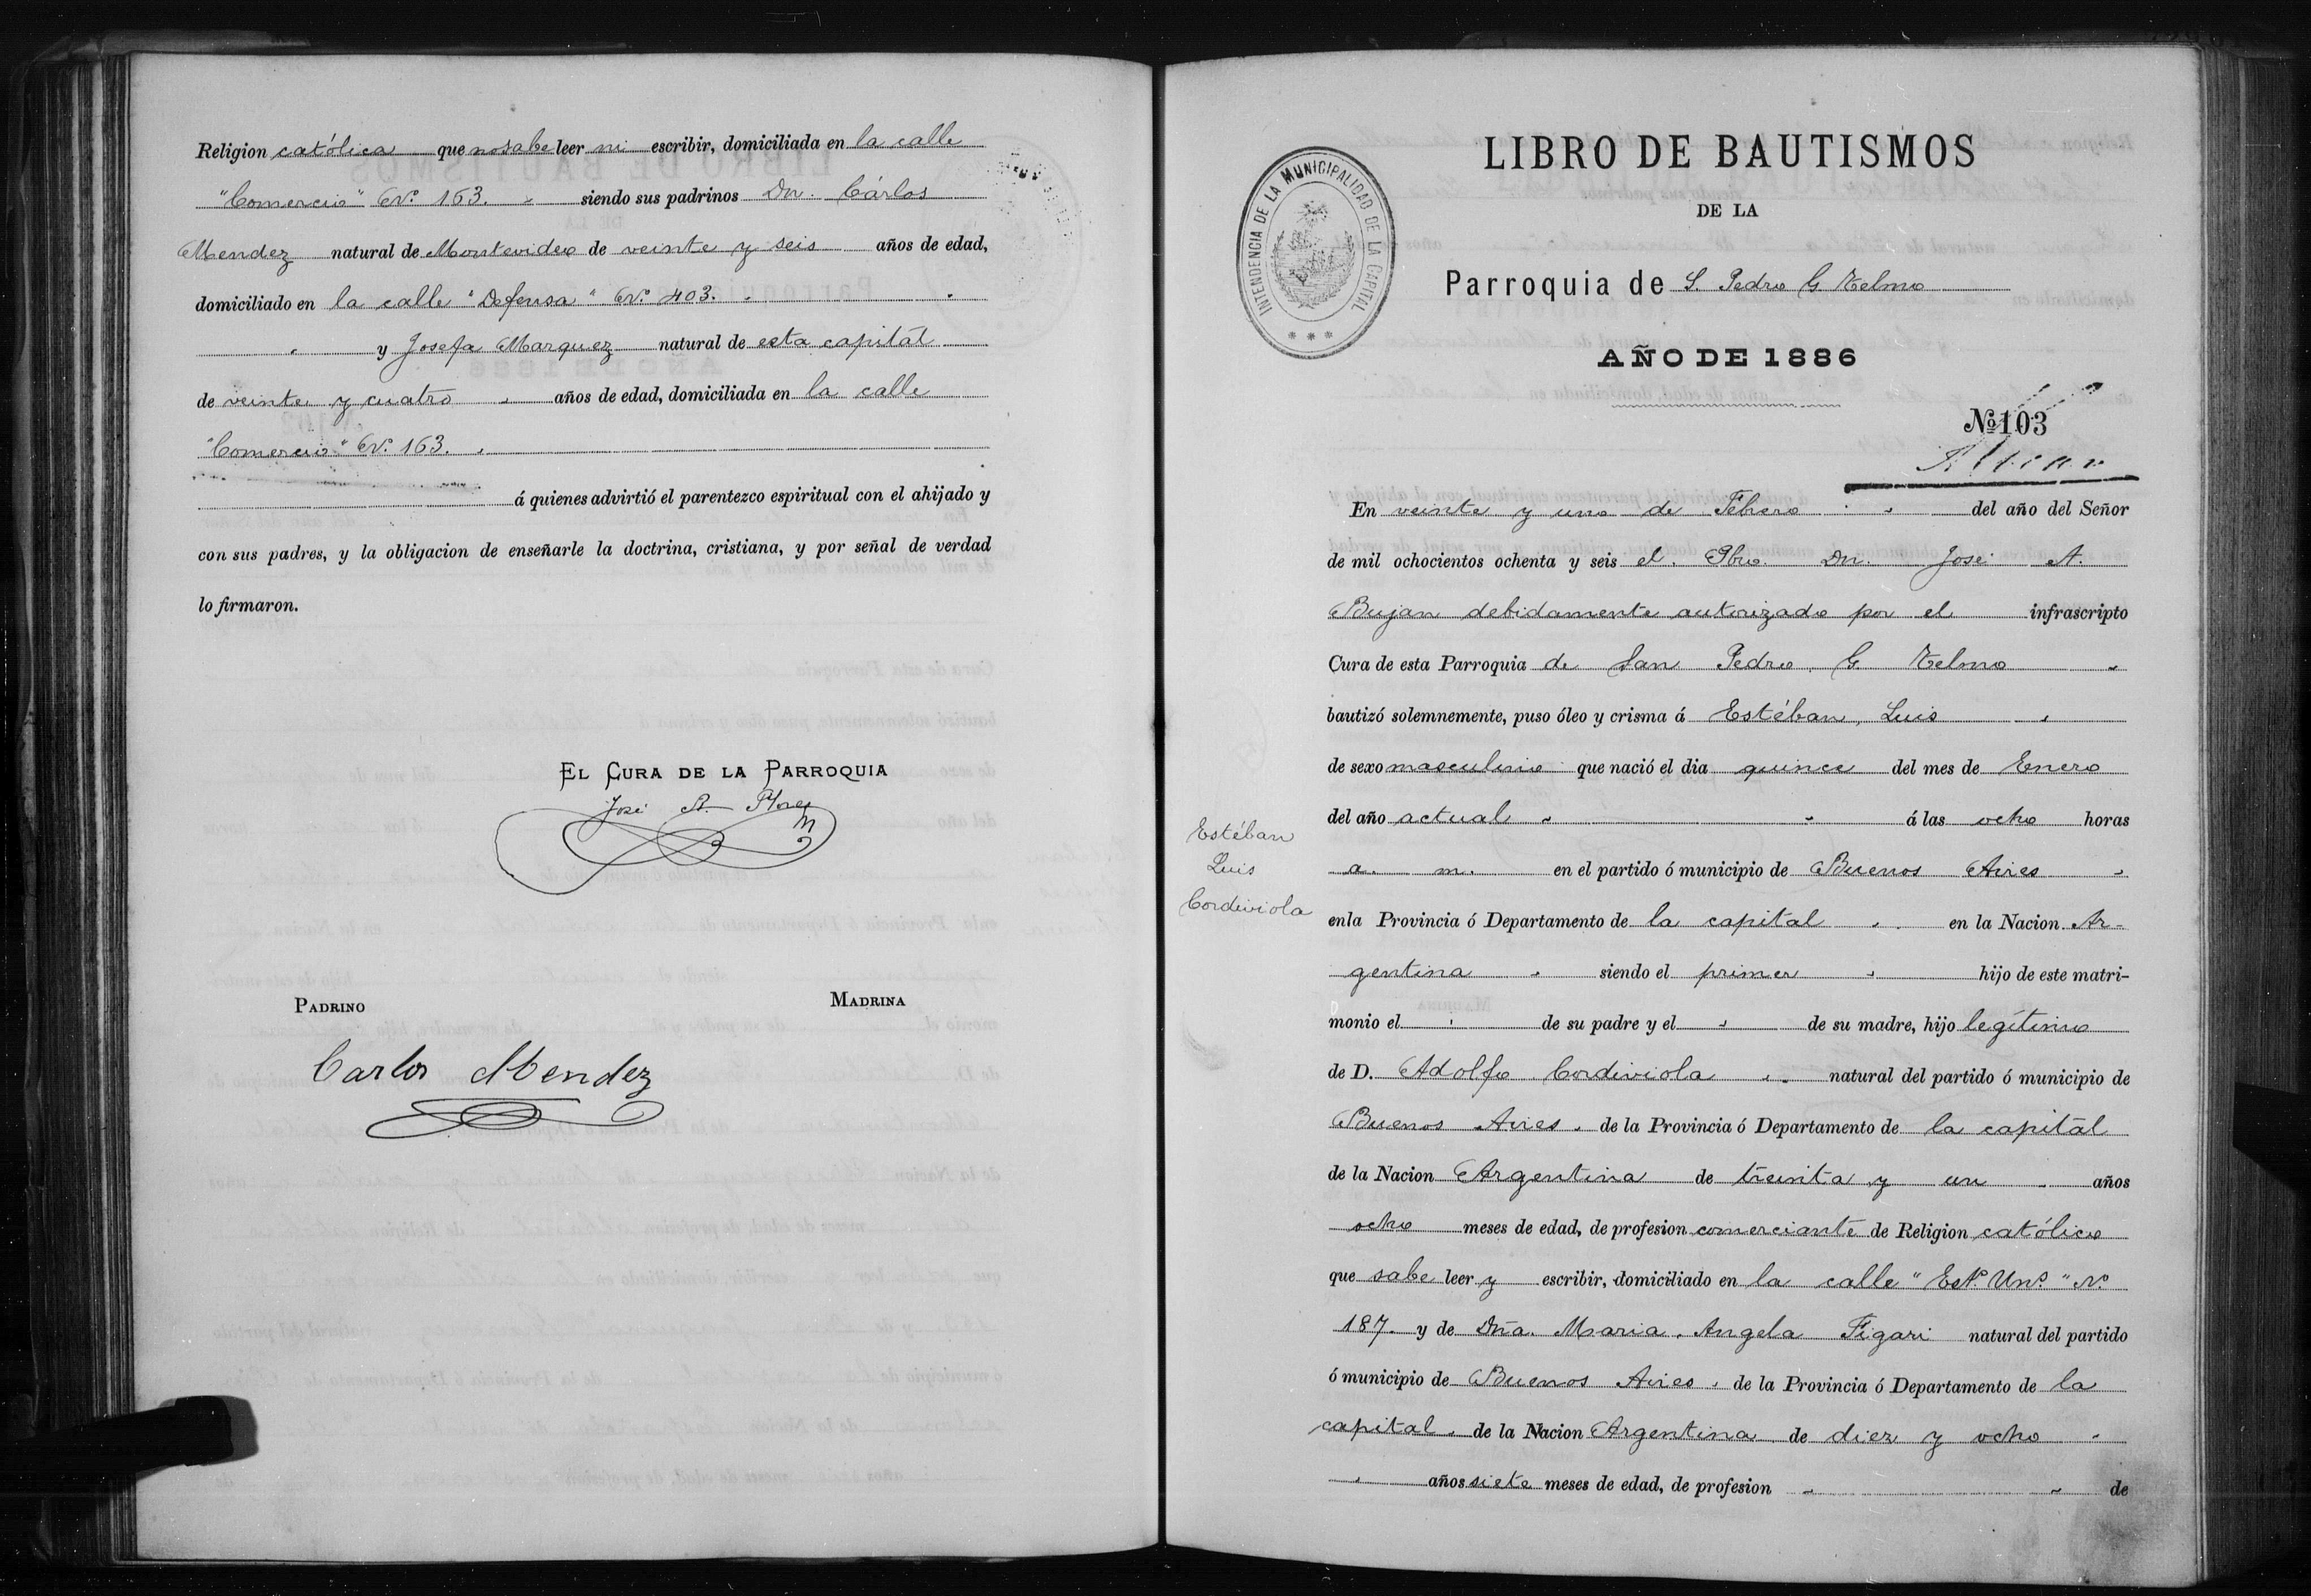 Religion católica que no sabe leer ni escribir, domiciliada en la calle
"Comercio" Nº 163. siendo sus padrinos Dn. Cárlos
Mendez natural de Montevideo de veinte y seis años de edad,
domiciliado en la calle "Defensa" Nº 403.
y Josefa Marquez natural de esta capital
de veinte y cuatro años de edad, domiciliada en la calle
"Comercio" Nº 163.
á quienes advirtió el parentezco espiritual con el ahijado y
con sus padres, y la obligacion de enseñarle la doctrina, cristiana, y por señal de verdad
lo firmaron.
EL CURA DE LA PARROQUIA
José A. Flores
PADRINO MADRINA
Carlos Mendez
LIBRO DE BAUTISMOS
DE LA
INTENDENCIA DE LA MUNICIPALIDAD DE LA CAPITAL
Parroquia de S. Pedro G. Telmo
AÑO DE 1886
Nº 103
En veinte y uno de Febrero del año del Señor
de mil ochocientos ochenta y seis el Pbro. Dn. José A.
Bujan debidamente autorizado por el infrascripto
Cura de esta Parroquia de San Pedro G. Telmo
bautizó solemnemente, puso óleo y crisma á Estéban, Luis
de sexo masculino que nació el dia quince del mes de Enero
del año actual á las ocho horas
a. m. en el partido ó municipio de Buenos Aires
enla Provincia ó Departamento de la capital en la Nacion Ar-
gentina siendo el primer hijo de este matri-
monio el de su padre y el de su madre, hijo legítimo
de D. Adolfo Cordiviola natural del partido ó municipio de
Buenos Aires de la Provincia ó Departamento de la capital
de la Nacion Argentina de treinta y un años
ocho meses de edad, de profesion comerciante de Religion católico
que sabe leer y escribir, domiciliado en la calle "Esº. Unº." Nº
187. y de Dña. Maria Angela Figari natural del partido
ó municipio de Buenos Aires de la Provincia ó Departamento de la
capital de la Nacion Argentina de diez y ocho
años siete meses de edad, de profesion de
Estéban
Luis
Cordiviola